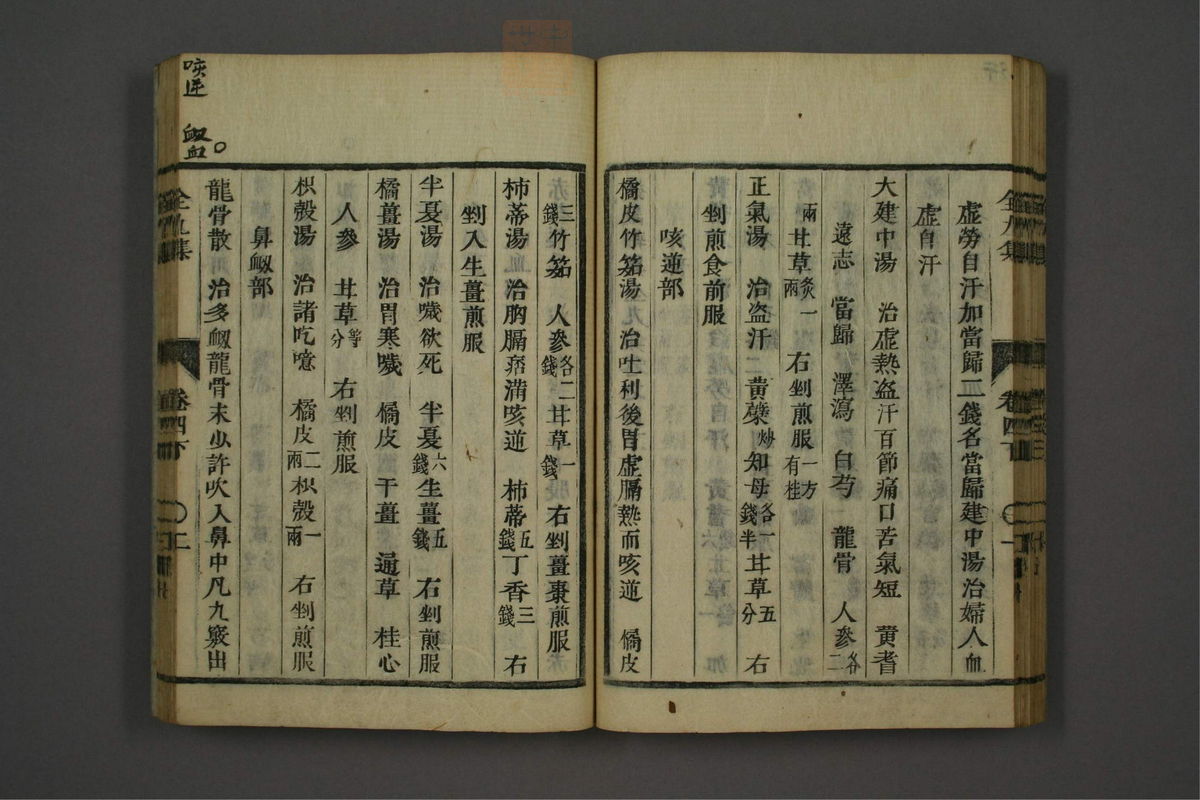 虛勞自汗加當歸二錢名當歸建中湯治婦人血
虛自汗
大建中湯 治虛熱盜汗百節痛口苦氣短 黄耆
遠志 當歸 澤瀉 白芍 龍骨 人參各二
兩 甘草炙一兩 右剉煎服一方有桂
正氣湯 治盗汗 黄蘗炒知母各一錢半甘草五分 右
剉煎食前服
咳逆部
橘皮竹筎湯治吐利後胃虛膈熱而咳逆 橘皮
三錢竹筎 人參各二錢甘草一錢右剉薑棗煎服
柿蒂湯治胸膈痞滿咳逆 柿蒂五錢丁香三錢 右
剉入生薑煎服
半夏湯 治噦欲死 半夏六錢生薑五錢 右剉煎服
橘薑湯 治胃寒噦 橘皮 干薑 通草 桂心
人參 甘草等分 右剉煎服
枳殼湯 治諸吃噫 橘皮二兩枳殼一兩 右剉煎服
鼻衂部
龍骨散 治多衂龍骨末少許吹入鼻中凡九竅出
全九集
卷四下
一
全九集
卷四下
二
咳逆
衂血